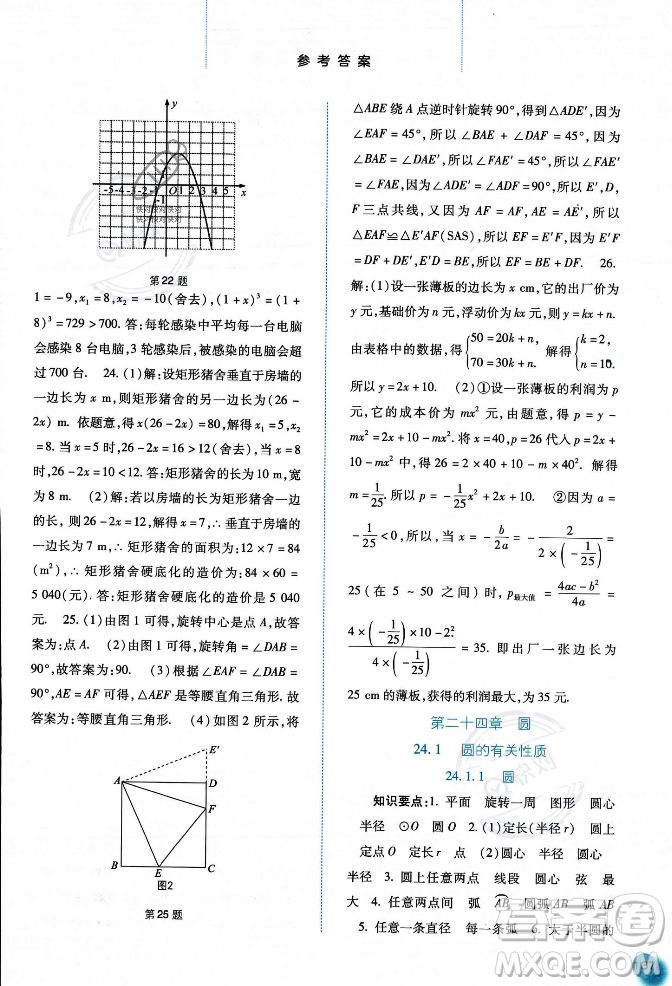 参考答案
y
-5 -4 -3 -2 -1 O 1 2 3 4 5 x
-1
第22题
1=-9,x₁=8,x₂=-10(舍去),(1+x)³=(1+
8)³=729>700. 答:每轮感染中平均每一台电脑
会感染8台电脑,3轮感染后,被感染的电脑会超
过700台. 24.(1)解:设矩形猪舍垂直于房墙的
一边长为x m,则矩形猪舍的另一边长为(26-
2x)m. 依题意,得x(26-2x)=80,解得x₁=5,x₂
=8. 当x=5时,26-2x=16>12(舍去);当x=8
时,26-2x=10<12. 答:矩形猪舍的长为10 m,宽
为8 m. (2)解:若以房墙的长为矩形猪舍一边
的长,则26-2x=12,解得x=7,∴垂直于房墙的
一边长为7 m,∴矩形猪舍的面积为:12×7=84
(m²),∴矩形猪舍硬底化的造价为:84×60=
5 040(元). 答:矩形猪舍硬底化的造价为5 040
元. 25.(1)由图1可得,旋转中心是点A,故答
案为:点A. (2)由图1可得,旋转角=∠DAB=
90°,故答案为:90. (3)根据∠EAF=∠DAB=
90°,AE=AF可得,△AEF是等腰直角三角形. 故
答案为:等腰直角三角形. (4)如图2所示,将
E′
A D
F
B E C
图2
第25题
△ABE绕A点逆时针旋转90°,得到△ADE′,因为
∠EAF=45°,所以∠BAE+∠DAF=45°,因为
∠BAE=∠DAE′,所以∠FAE′=45°,所以∠FAE′
=∠FAE,因为∠ADE′=∠ADF=90°,所以E′、D、
F三点共线,又因为AF=AF,AE=AE′,所以
△EAF≌△E′AF(SAS),所以EF=E′F,因为E′F=
E′D+DF,所以EF=DF+BE. 26.
解:(1)设一张薄板的边长为x cm,它的出厂价为y
元,基础价为n元,浮动价为kx元,则y=kx+n.
由表格中的数据,得{50=20k+n, 70=30k+n. 解得{k=2, n=10.
所以y=2x+10. (2)①设一张薄板的利润为p
元,它的成本价为mx²元,由题意,得p=y-mx²
=2x+10-mx². 将x=40,p=26代入p=2x+
10-mx²中,得26=2×40+10-m×40². 解得
m=1/25. 所以p=-1/25x²+2x+10. ②因为a=
-1/25<0,所以,当x=-b/2a=-2/(2×(-1/25))=
25(在5~50之间)时,p最大值=(4ac-b²)/4a=
(4×(-1/25)×10-2²)/(4×(-1/25))=35. 即出厂一张边长为
25 cm的薄板,获得的利润最大,为35元.
第二十四章 圆
24.1 圆的有关性质
24.1.1 圆
知识要点:1. 平面 旋转一周 图形 圆心
半径 ⊙O 圆O 2.(1)定长(半径r) 圆上
定点O 定长r 点 (2)圆心 半径 圆心
半径 3. 圆上任意两点 线段 圆心 弦 最
大 4. 任意两点间 弧 AB 圆弧AB 弧AB
5. 任意一条直径 每一条弧 6. 大于半圆的